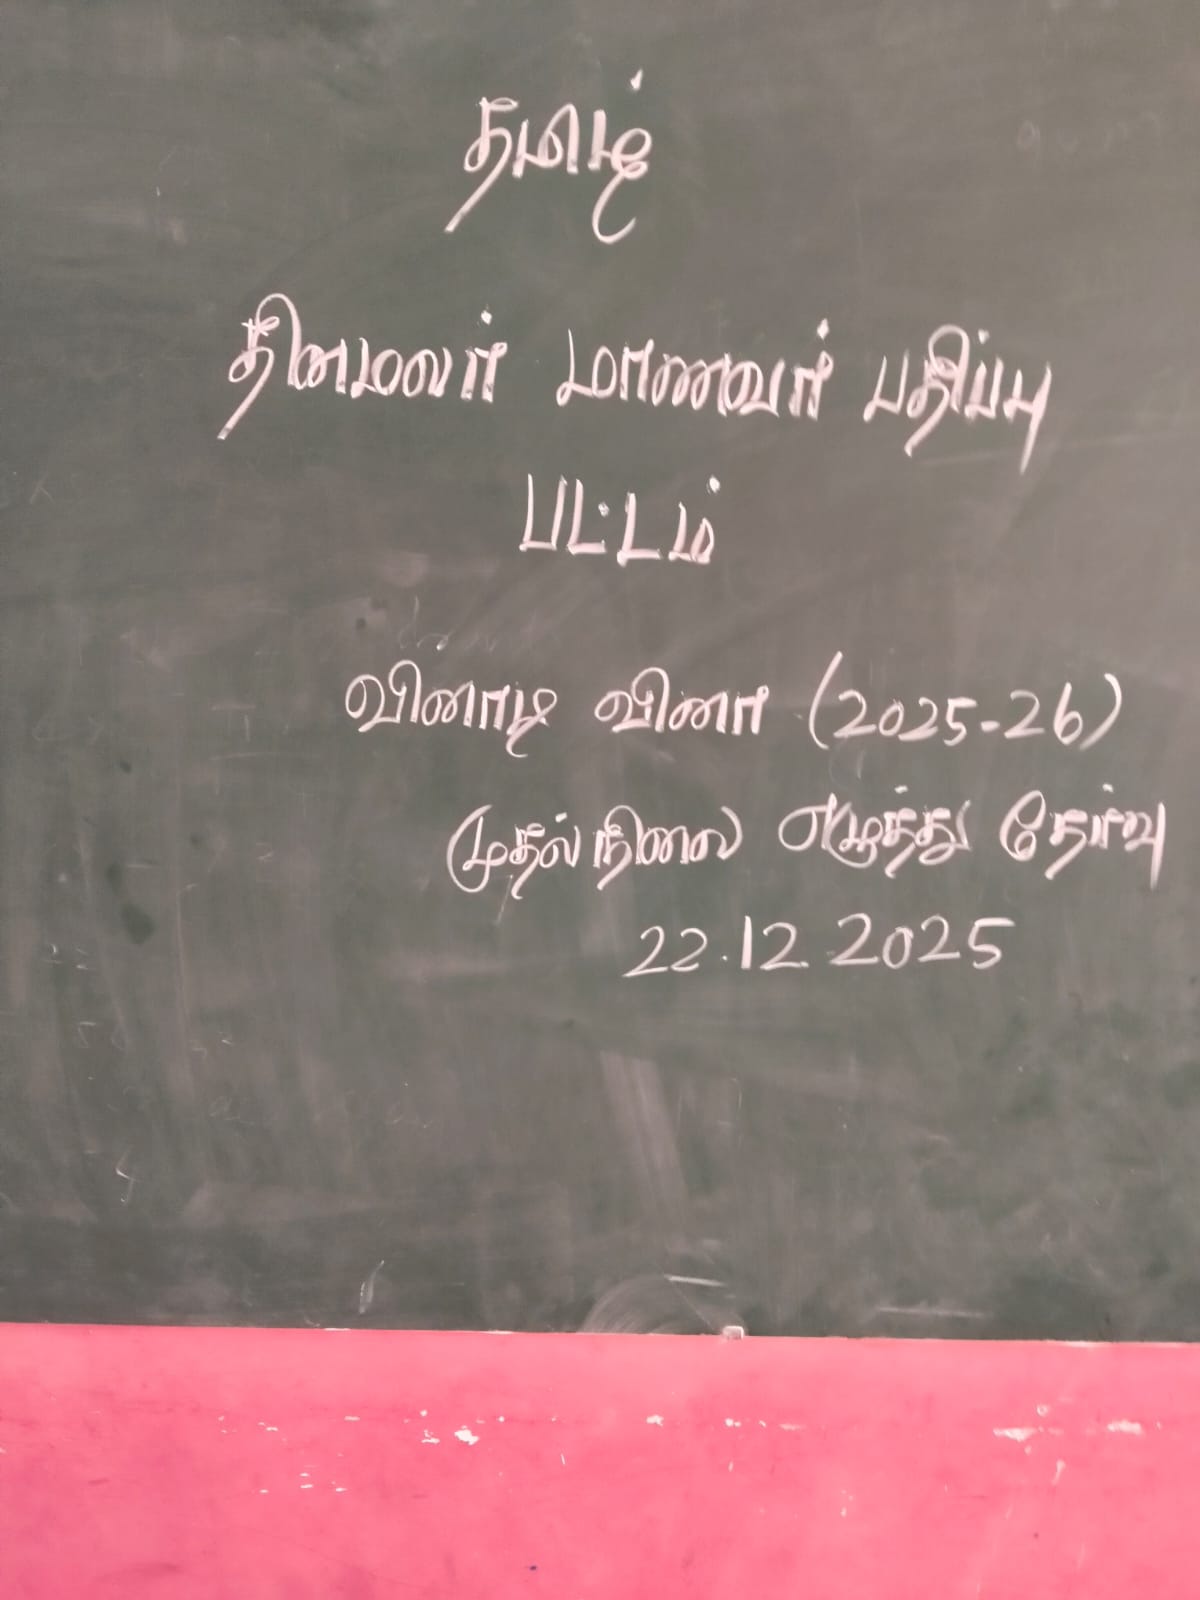 தமிழ்
தினமலர் மாணவர் பதிப்பு
பட்டம்
வினாடி வினா (2025-26)
முதல்நிலை எழுத்து தேர்வு
22.12.2025